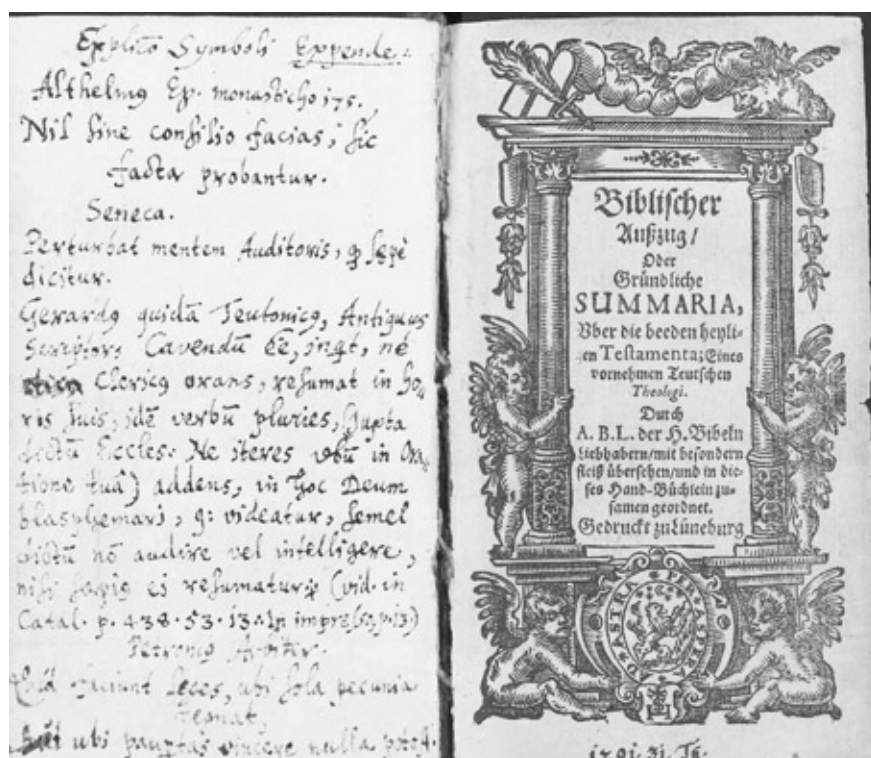 Explicõ Symboli Expende:
Althelmꝰ Ep. monasticho 175.
Nil sine consilio facias, sic
facta probantur.
Seneca.
Perturbat mentem Auditoris, qd sępè
dicitur.
Gerardꝰ quidã Teutonicꝰ, Antiquus
Scriptor, Cavendũ ẽe, inqt, né
Clericꝰ orans, resumat in ho-
ris suis, idẽ verbũ pluries, juxta
dictũ Eccles. Ne iteres vbũ in Ora-
tione tuâ) addens, in hoc Deum
blasphemari, q: videatur, semel
dictũ nõ audire vel intelligere,
nisi sępiꝰ ei resumatur (vid. in
Catal. p. 438. 53. in impress. p. 13)
Petroniꝰ Arbiter.
Quid faciunt Leges, ubi sola pecunia
regnat,
Aut ubi paupertas vincere nulla potest.
Biblischer
Außzug/
Oder
Gründliche
SUMMARIA,
Vber die beeden heyli-
en Testamenta; Eines
vornehmen Teutschen
Theologi.
Durch
A. B. L. der H. Bibeln
Liebhabern/mit besondern
fleiß übersehen/und in die-
ses Hand-Büchlein zu-
samen geordnet.
Gedruckt zu Lüneburg
AD ASTRA PER ASPERA